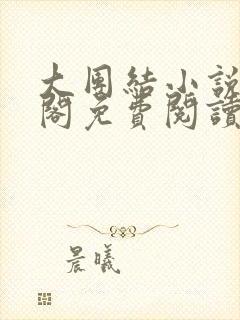 大團結小說
閣免費閱讀
晨曦